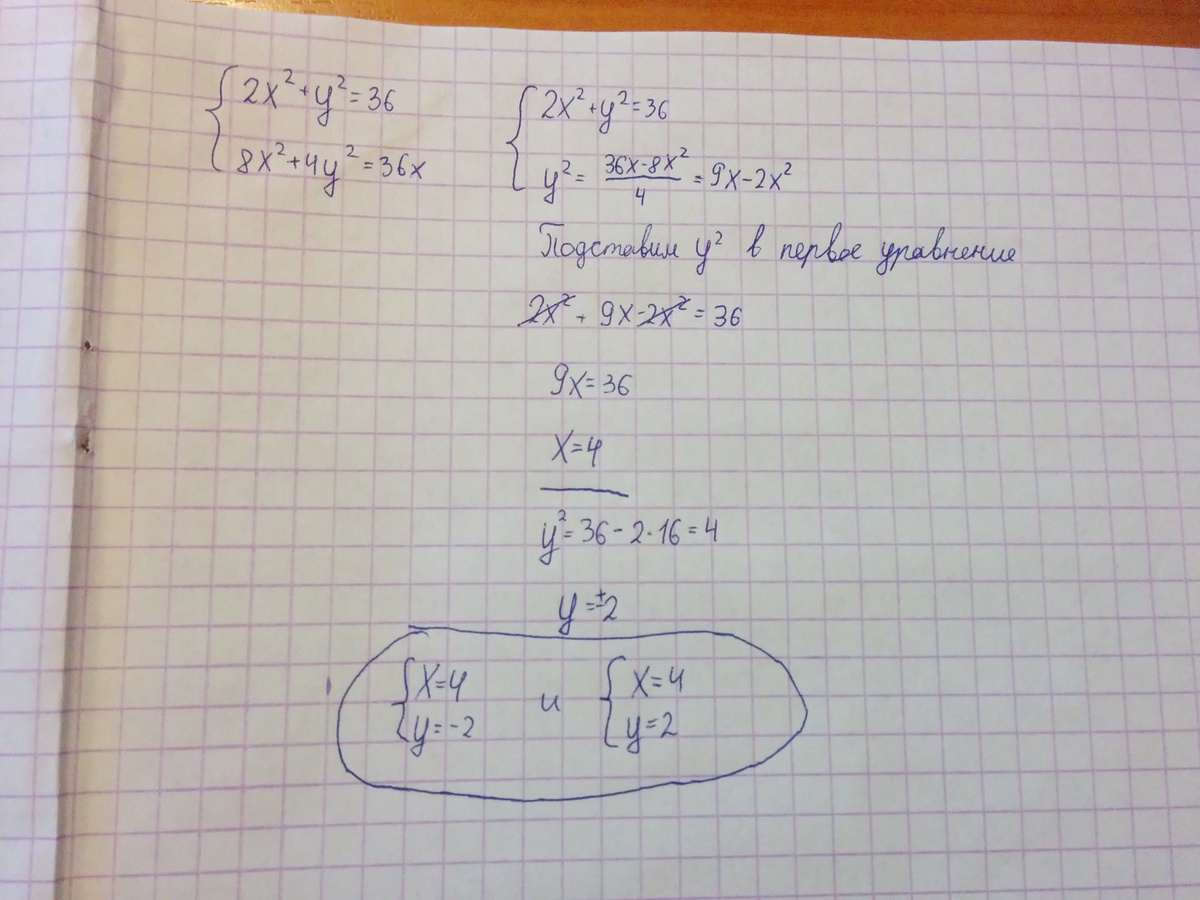 {2x²+y²=36
8x²+4y²=36x
{2x²+y²=36
y²= (36x-8x²)/4 = 9x-2x²
Подставим y² в первое уравнение
2x² + 9x-2x² = 36
9x=36
x=4
y²=36-2·16=4
y=±2
{x=4 и {x=4
y=-2 y=2